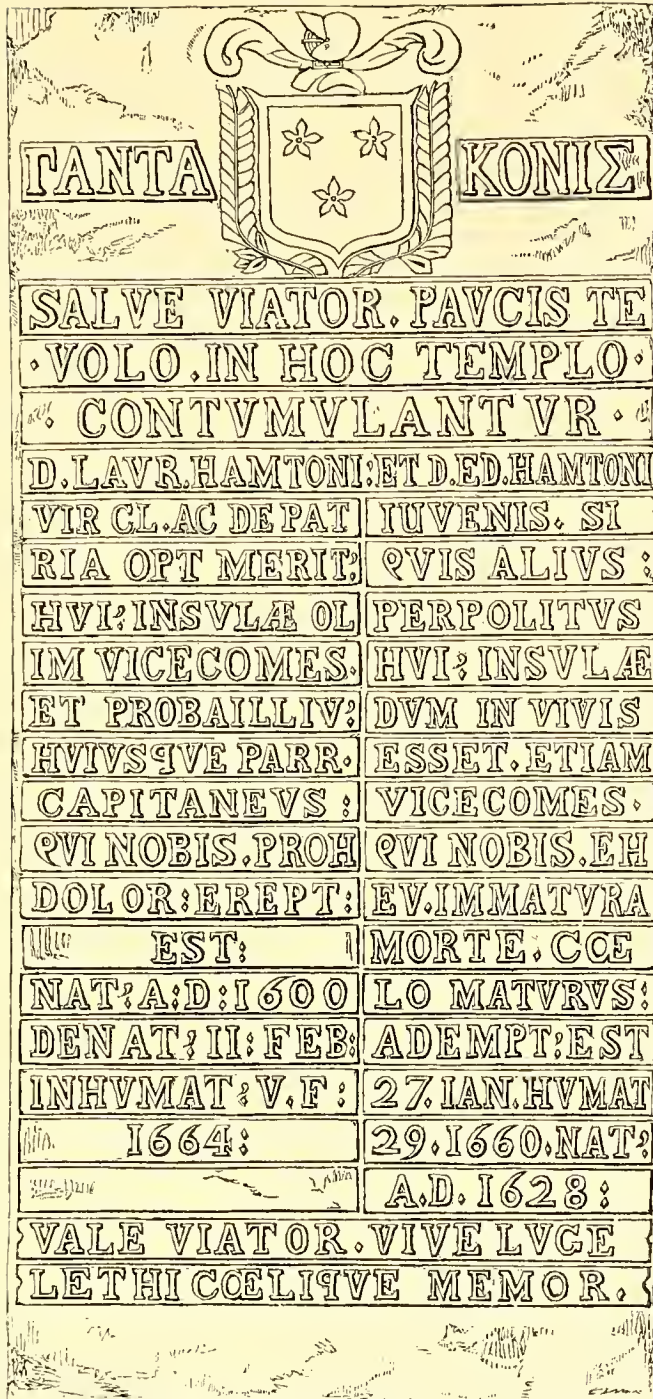 ΓΑΝΤΑ ΚΟΝΙΣ
SALVE VIATOR. PAVCIS TE
·VOLO. IN HOC TEMPLO·
· CONTVMVLANTVR ·
D. LAVR. HAMTONI: ET D. ED. HAMTONI
VIR CL. AC DE PAT
RIA OPT MERIT:
HVI: INSVLÆ OL
IM VICECOMES.
ET PROBAILLIV:
HVIVSqVE PARR.
CAPITANEVS :
QVI NOBIS. PROH
DOLOR: EREPT:
EST:
NAT: A: D: 1600
DENAT: II: FEB:
INHVMAT: V. F :
1664:
IUVENIS. SI
QVIS ALIVS :
PERPOLITVS
HVI: INSVLÆ
DVM IN VIVIS
ESSET. ETIAM
VICECOMES.
QVI NOBIS. EH
EV. IMMATVRA
MORTE. CŒ
LO MATVRVS:
ADEMPT: EST
27. IAN. HVMAT
29. 1660. NAT:
A.D. 1628 :
VALE VIATOR. VIVE LVCE
LETHI CŒLIqVE MEMOR.